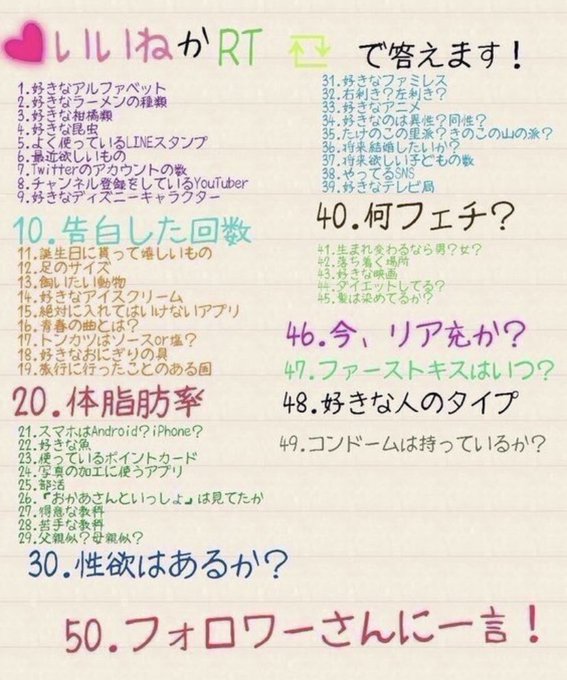 いいねかRT で答えます！
1.好きなアルファベット
2.好きなラーメンの種類
3.好きな柑橘類
4.好きな昆虫
5.よく使っているLINEスタンプ
6.最近欲しいもの
7.Twitterのアカウントの数
8.チャンネル登録をしているYouTuber
9.好きなディズニーキャラクター
10.告白した回数
11.誕生日に貰って嬉しいもの
12.足のサイズ
13.飼いたい動物
14.好きなアイスクリーム
15.絶対に入れてはいけないアプリ
16.青春の曲とは？
17.トンカツはソースor塩？
18.好きなおにぎりの具
19.旅行に行ったことのある国
20.体脂肪率
21.スマホはAndroid？iPhone？
22.好きな魚
23.使っているポイントカード
24.写真の加工に使うアプリ
25.部活
26.『おかあさんといっしょ』は見てたか
27.得意な教科
28.苦手な教科
29.父親似？母親似？
30.性欲はあるか？
31.好きなファミレス
32.右利き？左利き？
33.好きなアニメ
34.好きなのは異性？同性？
35.たけのこの里派？きのこの山の派？
36.将来結婚したいか？
37.将来欲しい子どもの数
38.やってるSNS
39.好きなテレビ局
40.何フェチ？
41.生まれ変わるなら男？女？
42.落ち着く場所
43.好きな映画
44.ダイエットしてる？
45.髪は染めてるか？
46.今、リア充か？
47.ファーストキスはいつ？
48.好きな人のタイプ
49.コンドームは持っているか？
50.フォロワーさんに一言！